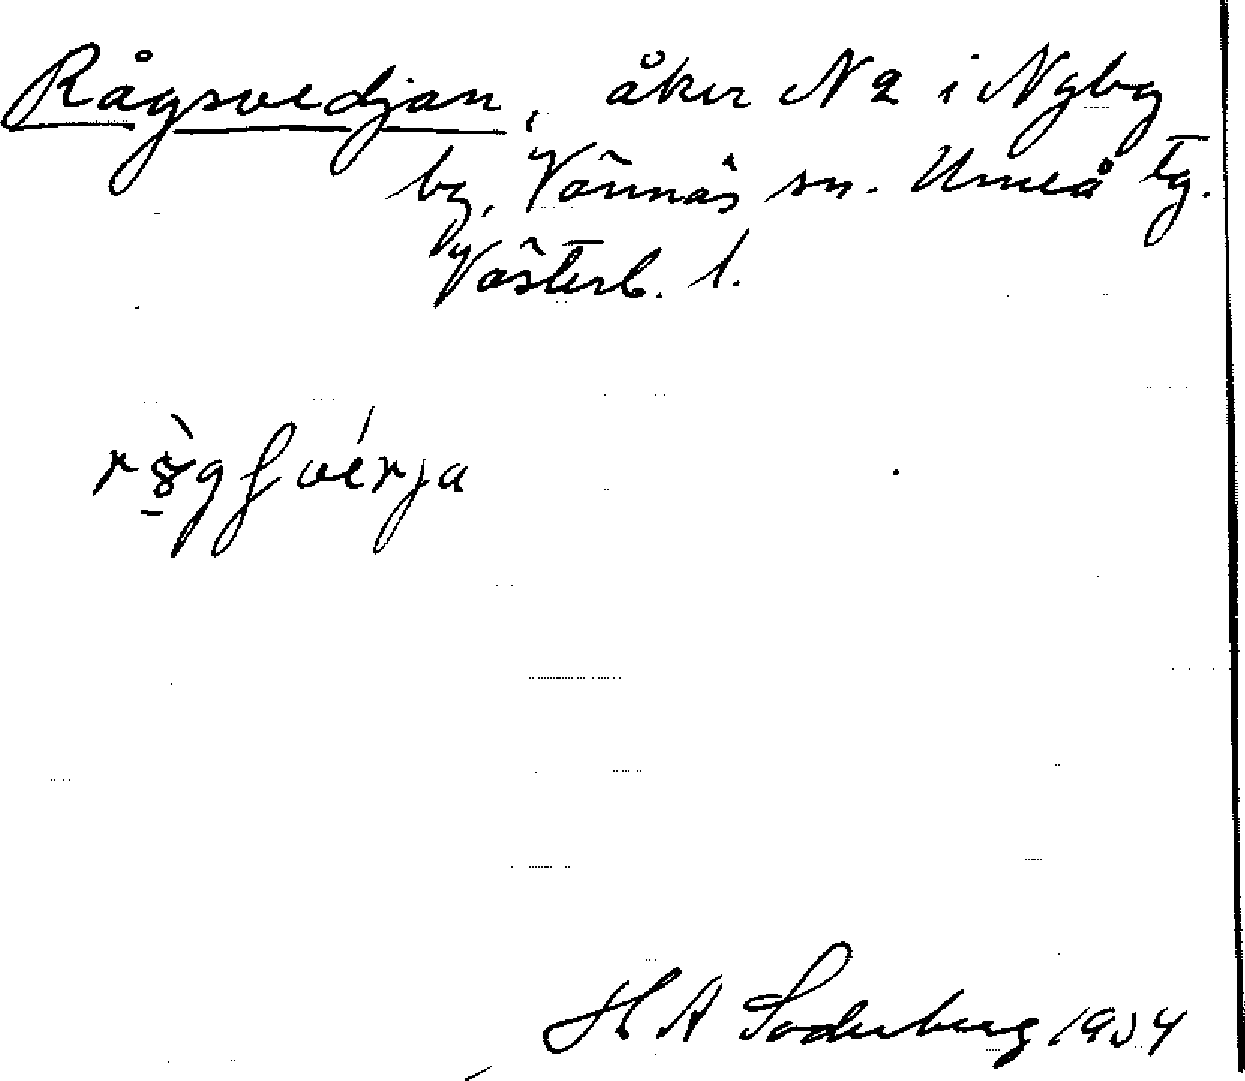 Rågsvedjan, åker N 2 i Nyby
by, Vännäs sn. Umeå tg.
Västerb. l.
H A Söderberg 1934